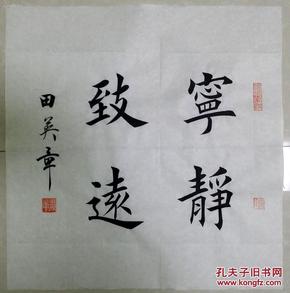 寧靜
致遠
田英章
孔夫子旧书网
kongfz.com